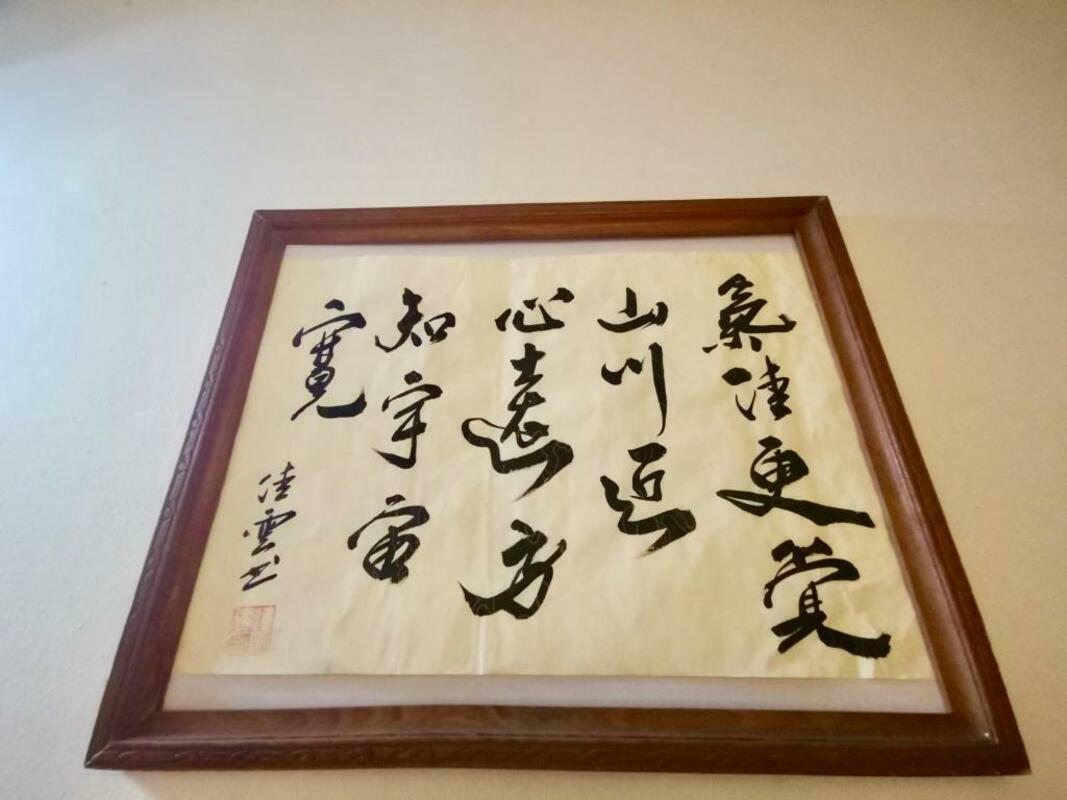 氣佳更覺
山川近
心遠方
知宇宙
寬
佳雲书